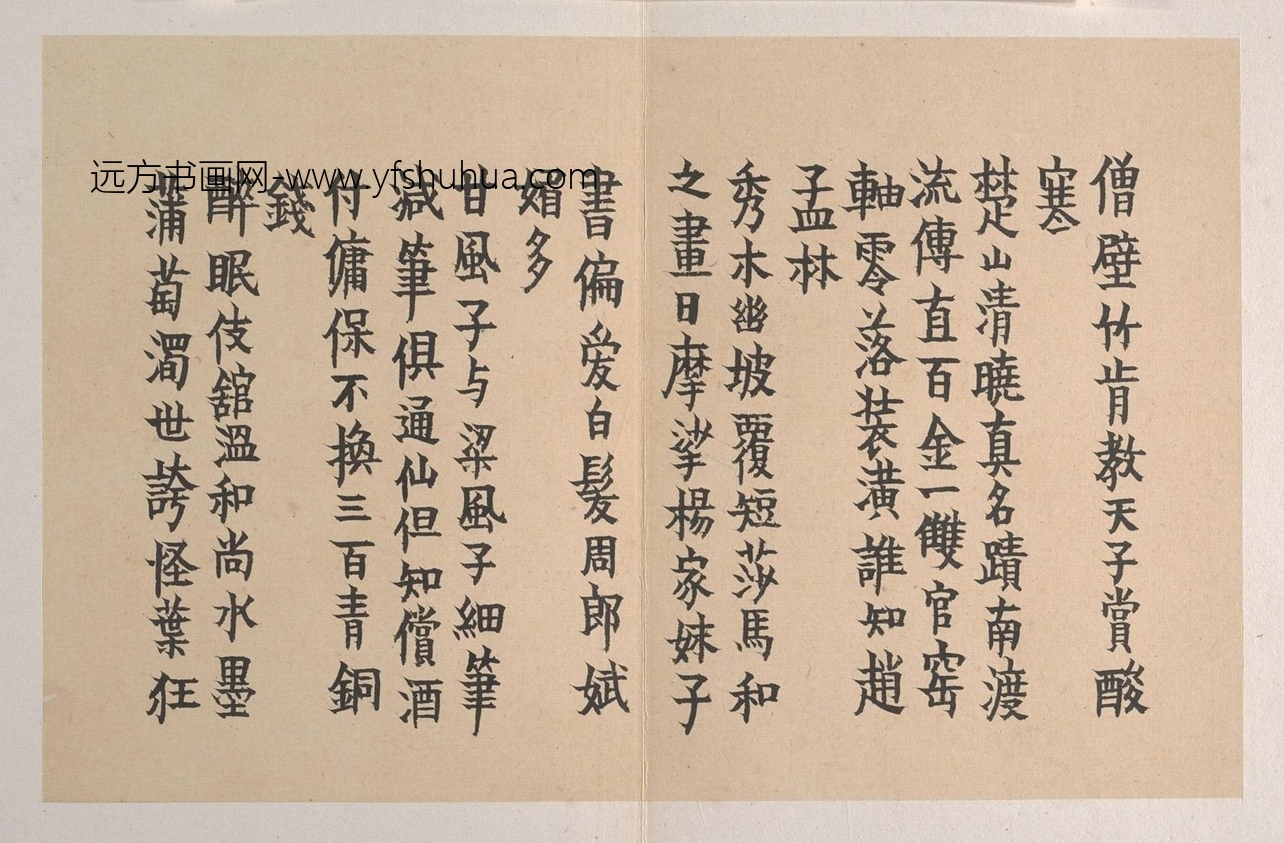 僧壁竹肯教天子賞酸
寒
楚山清曉真名蹟南渡
流傳直百金一雙官窑
軸零落裝潢誰知趙
子孟林
秀木幽坡覆短莎馬和
之畫日摩挲楊家妹子
書偏爱白髮周郎斌
媚多
甘風子与梁風子細筆
減筆俱通仙但知償酒
付傭保不換三百青銅
錢
醉眠伎舘溫和尚水墨
蒲萄濁世誇怪葉狂
远方书画网-www.yfshuhua.com